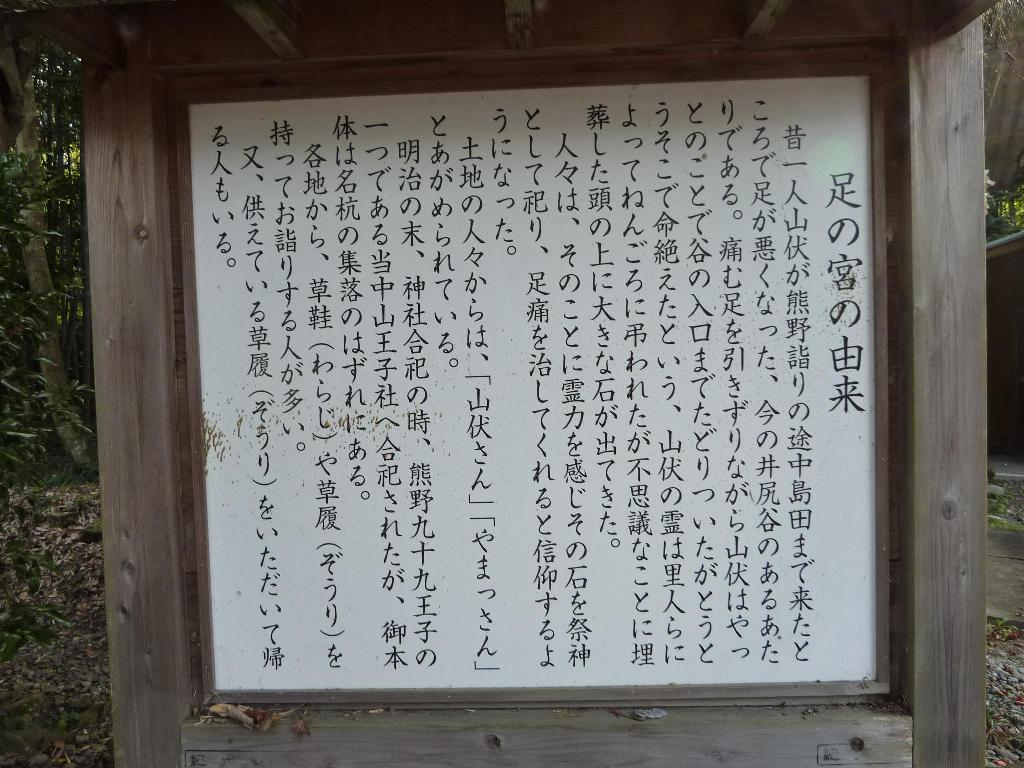 足の宮の由来
昔一人山伏が熊野詣りの途中島田まで来たと
ころで足が悪くなった、今の井尻谷のあるあた
りである。痛む足を引きずりながら山伏はやっ
とのことで谷の入口までたどりついたがとうと
うそこで命絶えたという、山伏の霊は里人らに
よってねんごろに弔われたが不思議なことに埋
葬した頭の上に大きな石が出てきた。
人々は、そのことに霊力を感じその石を祭神
として祀り、足痛を治してくれると信仰するよ
うになった。
土地の人々からは、「山伏さん」「やまっさん」
とあがめられている。
明治の末、神社合祀の時、熊野九十九王子の
一つである当中山王子社へ合祀されたが、御本
体は名杭の集落のはずれにある。
各地から、草鞋(わらじ)や草履(ぞうり)を
持ってお詣りする人が多い。
又、供えている草履(ぞうり)をいただいて帰
る人もいる。